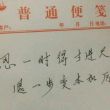 普通便笺
忍一时得寸进尺
退一步变本加厉